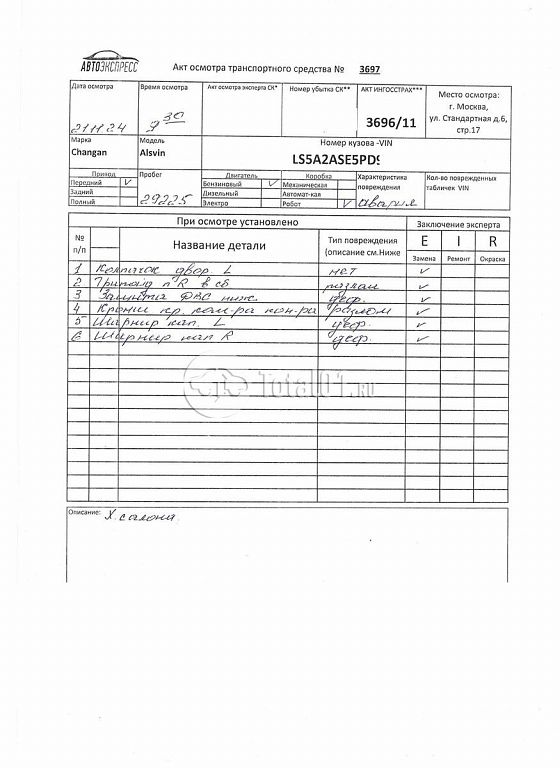 АВТОЭКСПРЕСС
Акт осмотра транспортного средства № 3697
Дата осмотра
Время осмотра
Акт осмотра эксперта СК*
Номер убытка СК**
АКТ ИНГОССТРАХ***
Место осмотра:
г. Москва,
ул. Стандартная д.6,
стр.17
21 11 24
9 30
3696/11
Марка
Модель
Номер кузова -VIN
Changan
Alsvin
LS5A2ASE5PD9
Привод
Пробег
Двигатель
Коробка
Характеристика повреждений
Кол-во поврежденных табличек VIN
Передний V
Бензиновый V
Механическая
Задний
Дизельный
Автомат-кая
Полный
Электро
Робот V
29225
авария
При осмотре установлено
Заключение эксперта
№ п/п
Название детали
Тип повреждения (описание см.Ниже
E I R
Замена Ремонт Окраска
1 Колпачок двор. L нет ✓
2 п R в сб разлом ✓
3 Защита ДВС ниж. деф. ✓
4 Кронш пр. разлом ✓
5 Шарнир кап. L деф. ✓
6 Шарнир кап R деф. ✓
Total01.RU
Описание: Х. салона.